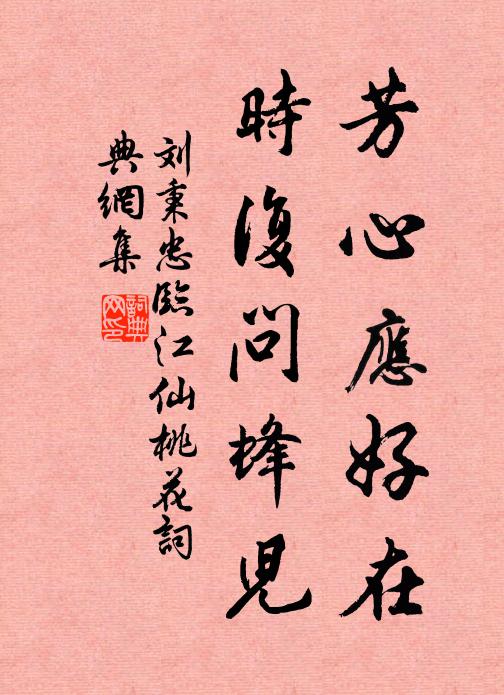 芳心應好在
時復問蜂兒
刘秉忠臨江仙桃花詞
典網集
詞典網印